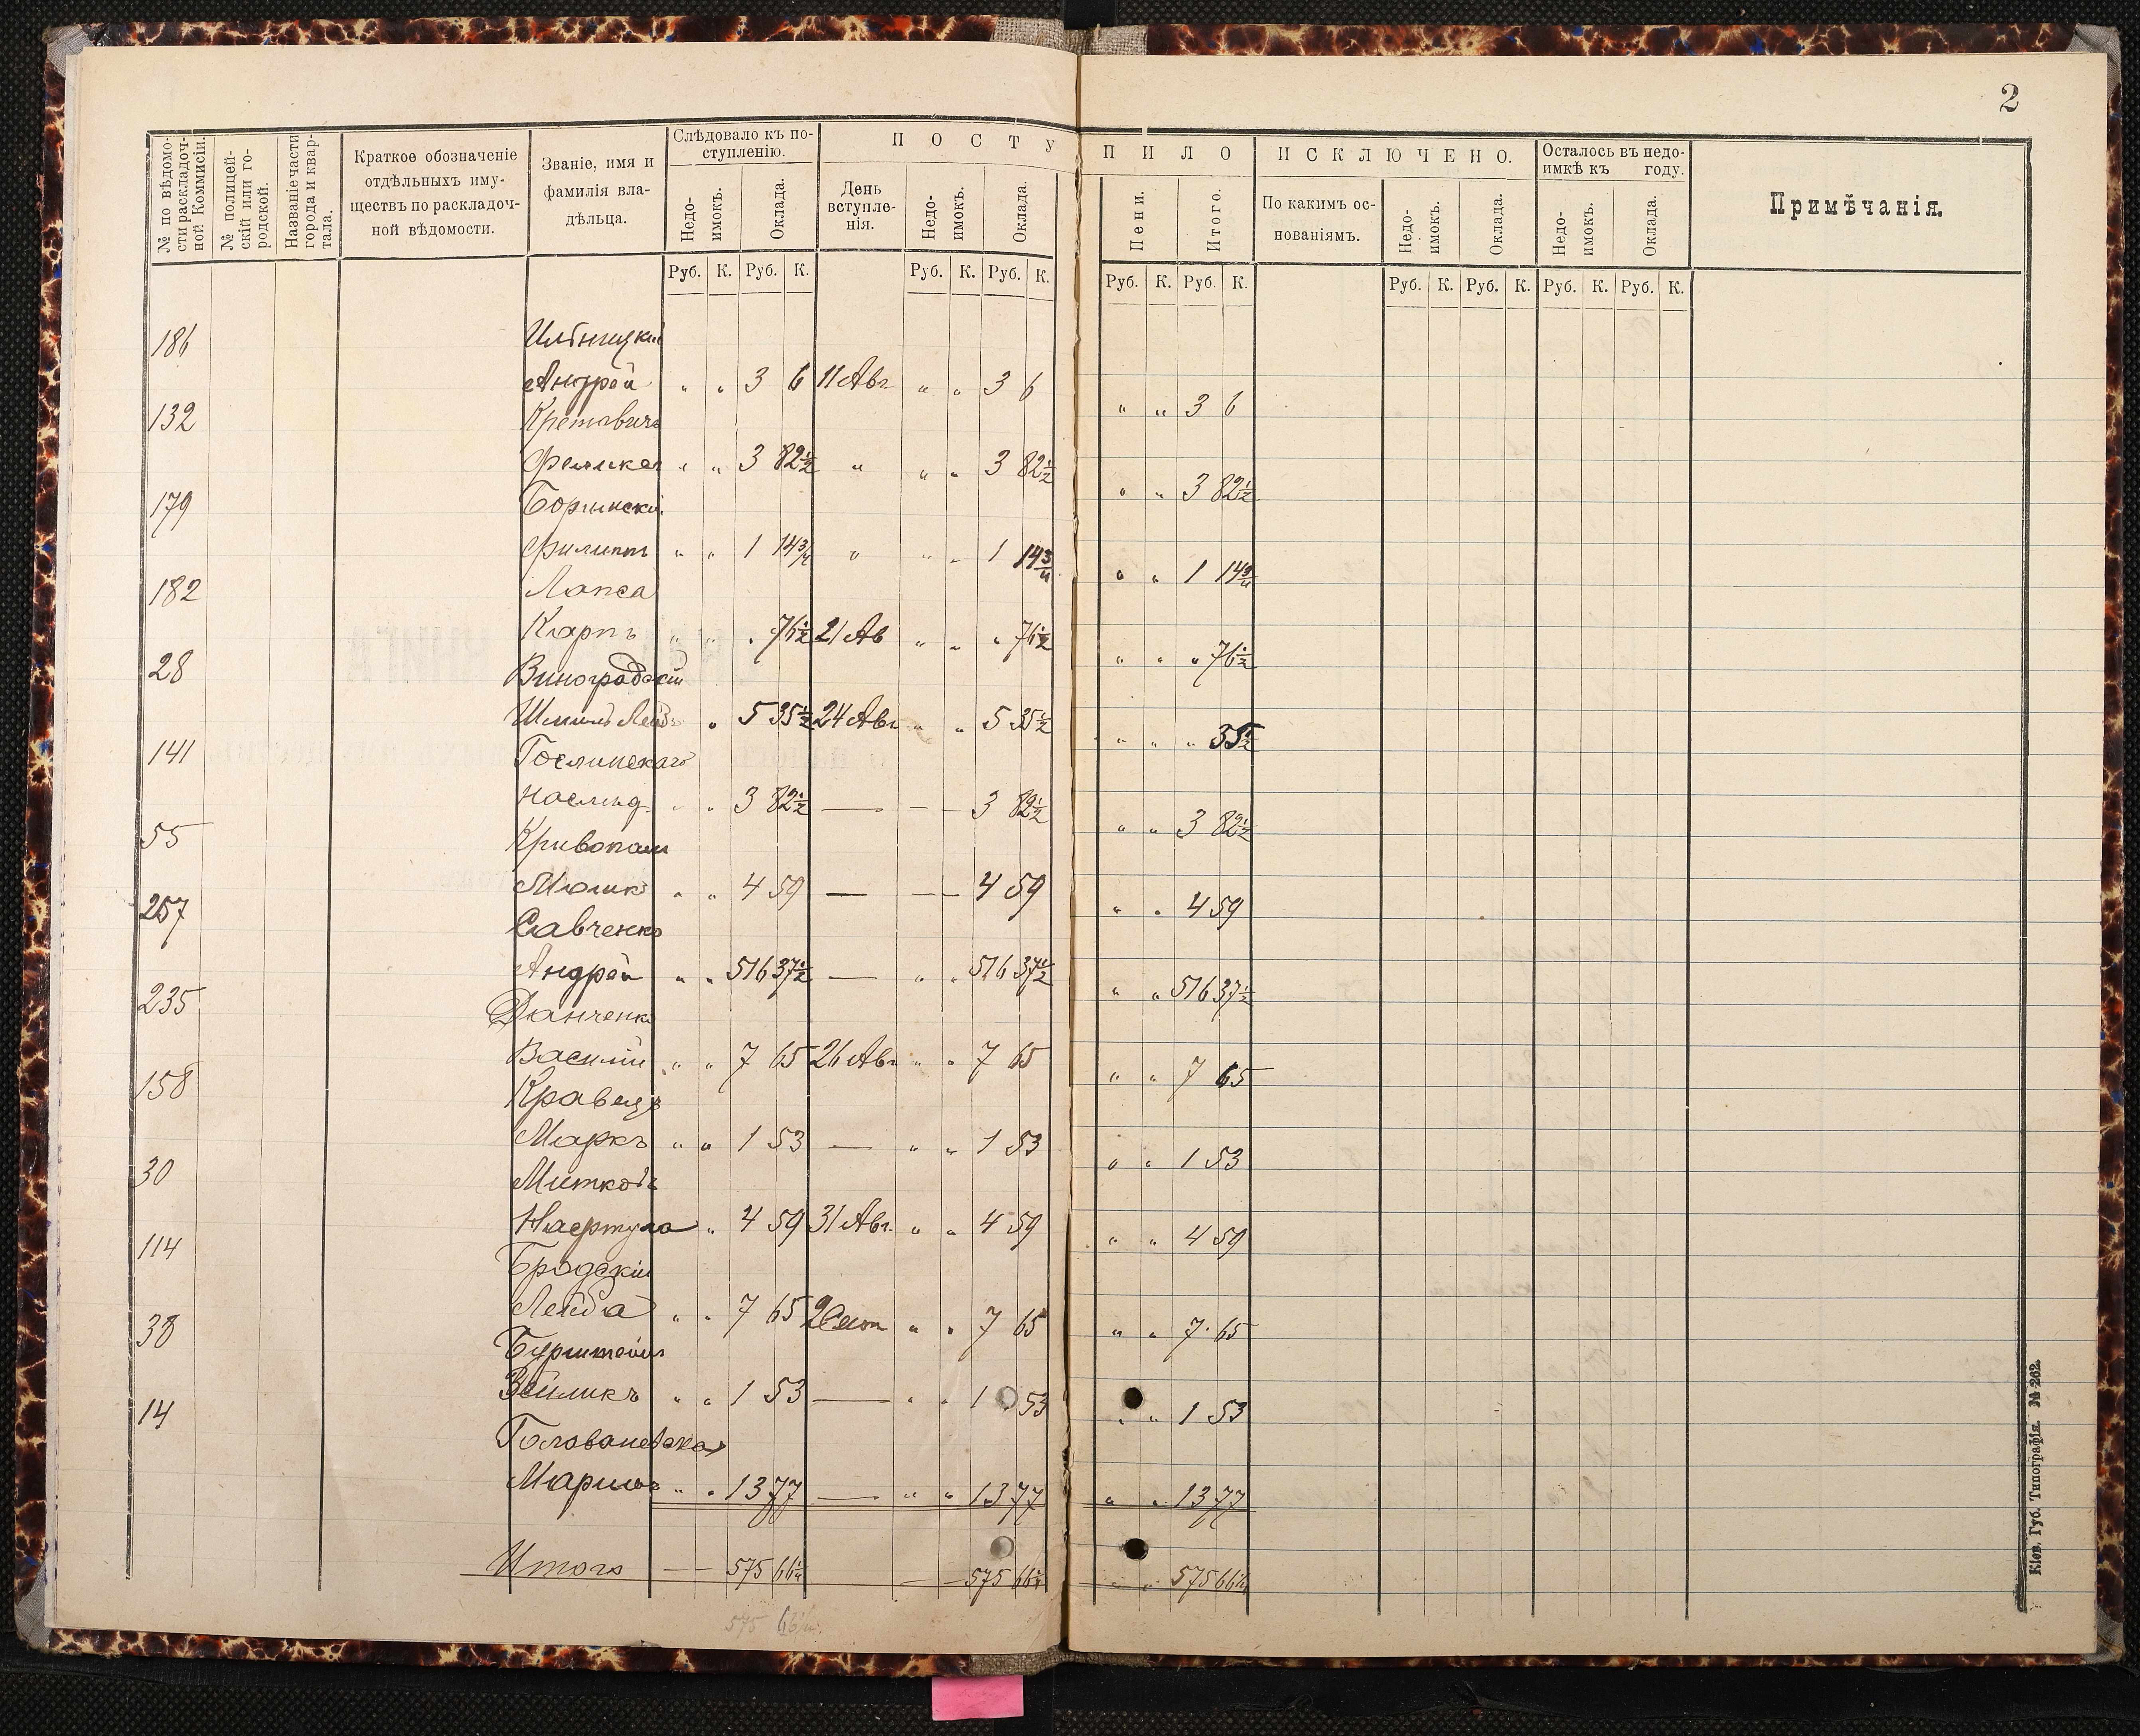 2
№ по вѣдомости раскладочной Коммисіи.
№ полицейскій или городской.
Названіе части города и квартала.
Краткое обозначеніе отдѣльныхъ имуществъ по раскладочной вѣдомости.
Званіе, имя и фамилія владѣльца.
Слѣдовало къ поступленію.
ПОСТУПИЛО
ИСКЛЮЧЕНО.
Осталось въ недоимкѣ къ году.
Примѣчанія.
Недоимокъ. Оклада. День вступленія. Недоимокъ. Оклада. Пени. Итого. По какимъ основаніямъ. Недоимокъ. Оклада. Недоимокъ. Оклада.
Руб. К. Руб. К. Руб. К. Руб. К. Руб. К. Руб. К. Руб. К. Руб. К. Руб. К. Руб. К.
186
Андрей " " 3 6 11 Авг " " 3 6 " " 3 6
132
" " 3 82½ " " " 3 82½ " " 3 82½
179
Филиппъ " " 1 14¾ " " " 1 14¾ " " 1 14¾
182 Лапса
Карпъ " " " 76½ 21 Ав " " " 76½ " " " 76½
28 Виноградскій
Шмиль Лейб " 5 35½ 24 Авг " " 5 35½ " " " 35½
141 Гослинскаго
наслѣд. " " 3 82½ — — — 3 82½ " " 3 82½
55
" " 4 59 — — — 4 59 " " 4 59
257 Савченко
Андрей " " 516 37½ — " " 516 37½ " " 516 37½
235 Данченко
Василій " " 7 65 26 Авг " " 7 65 " " 7 65
158 Кравецъ
Маркъ " " 1 53 — " " 1 53 " " 1 53
30
" 4 59 31 Авг. " " 4 59 " " 4 59
114 Бродскій
Лейба " " 7 65 2 Сент " " 7 65 " " 7 65
38 Бурштейнъ
Зейликъ " " 1 53 — " " 1 53 " " 1 53
14 Голованевская
" " 13 77 — " " 13 77 " " 13 77
Итого — — 575 66¼ — — 575 66¼ " " 575 66¼
575 66¼
Кіев. Губ. Типографія. № 262.